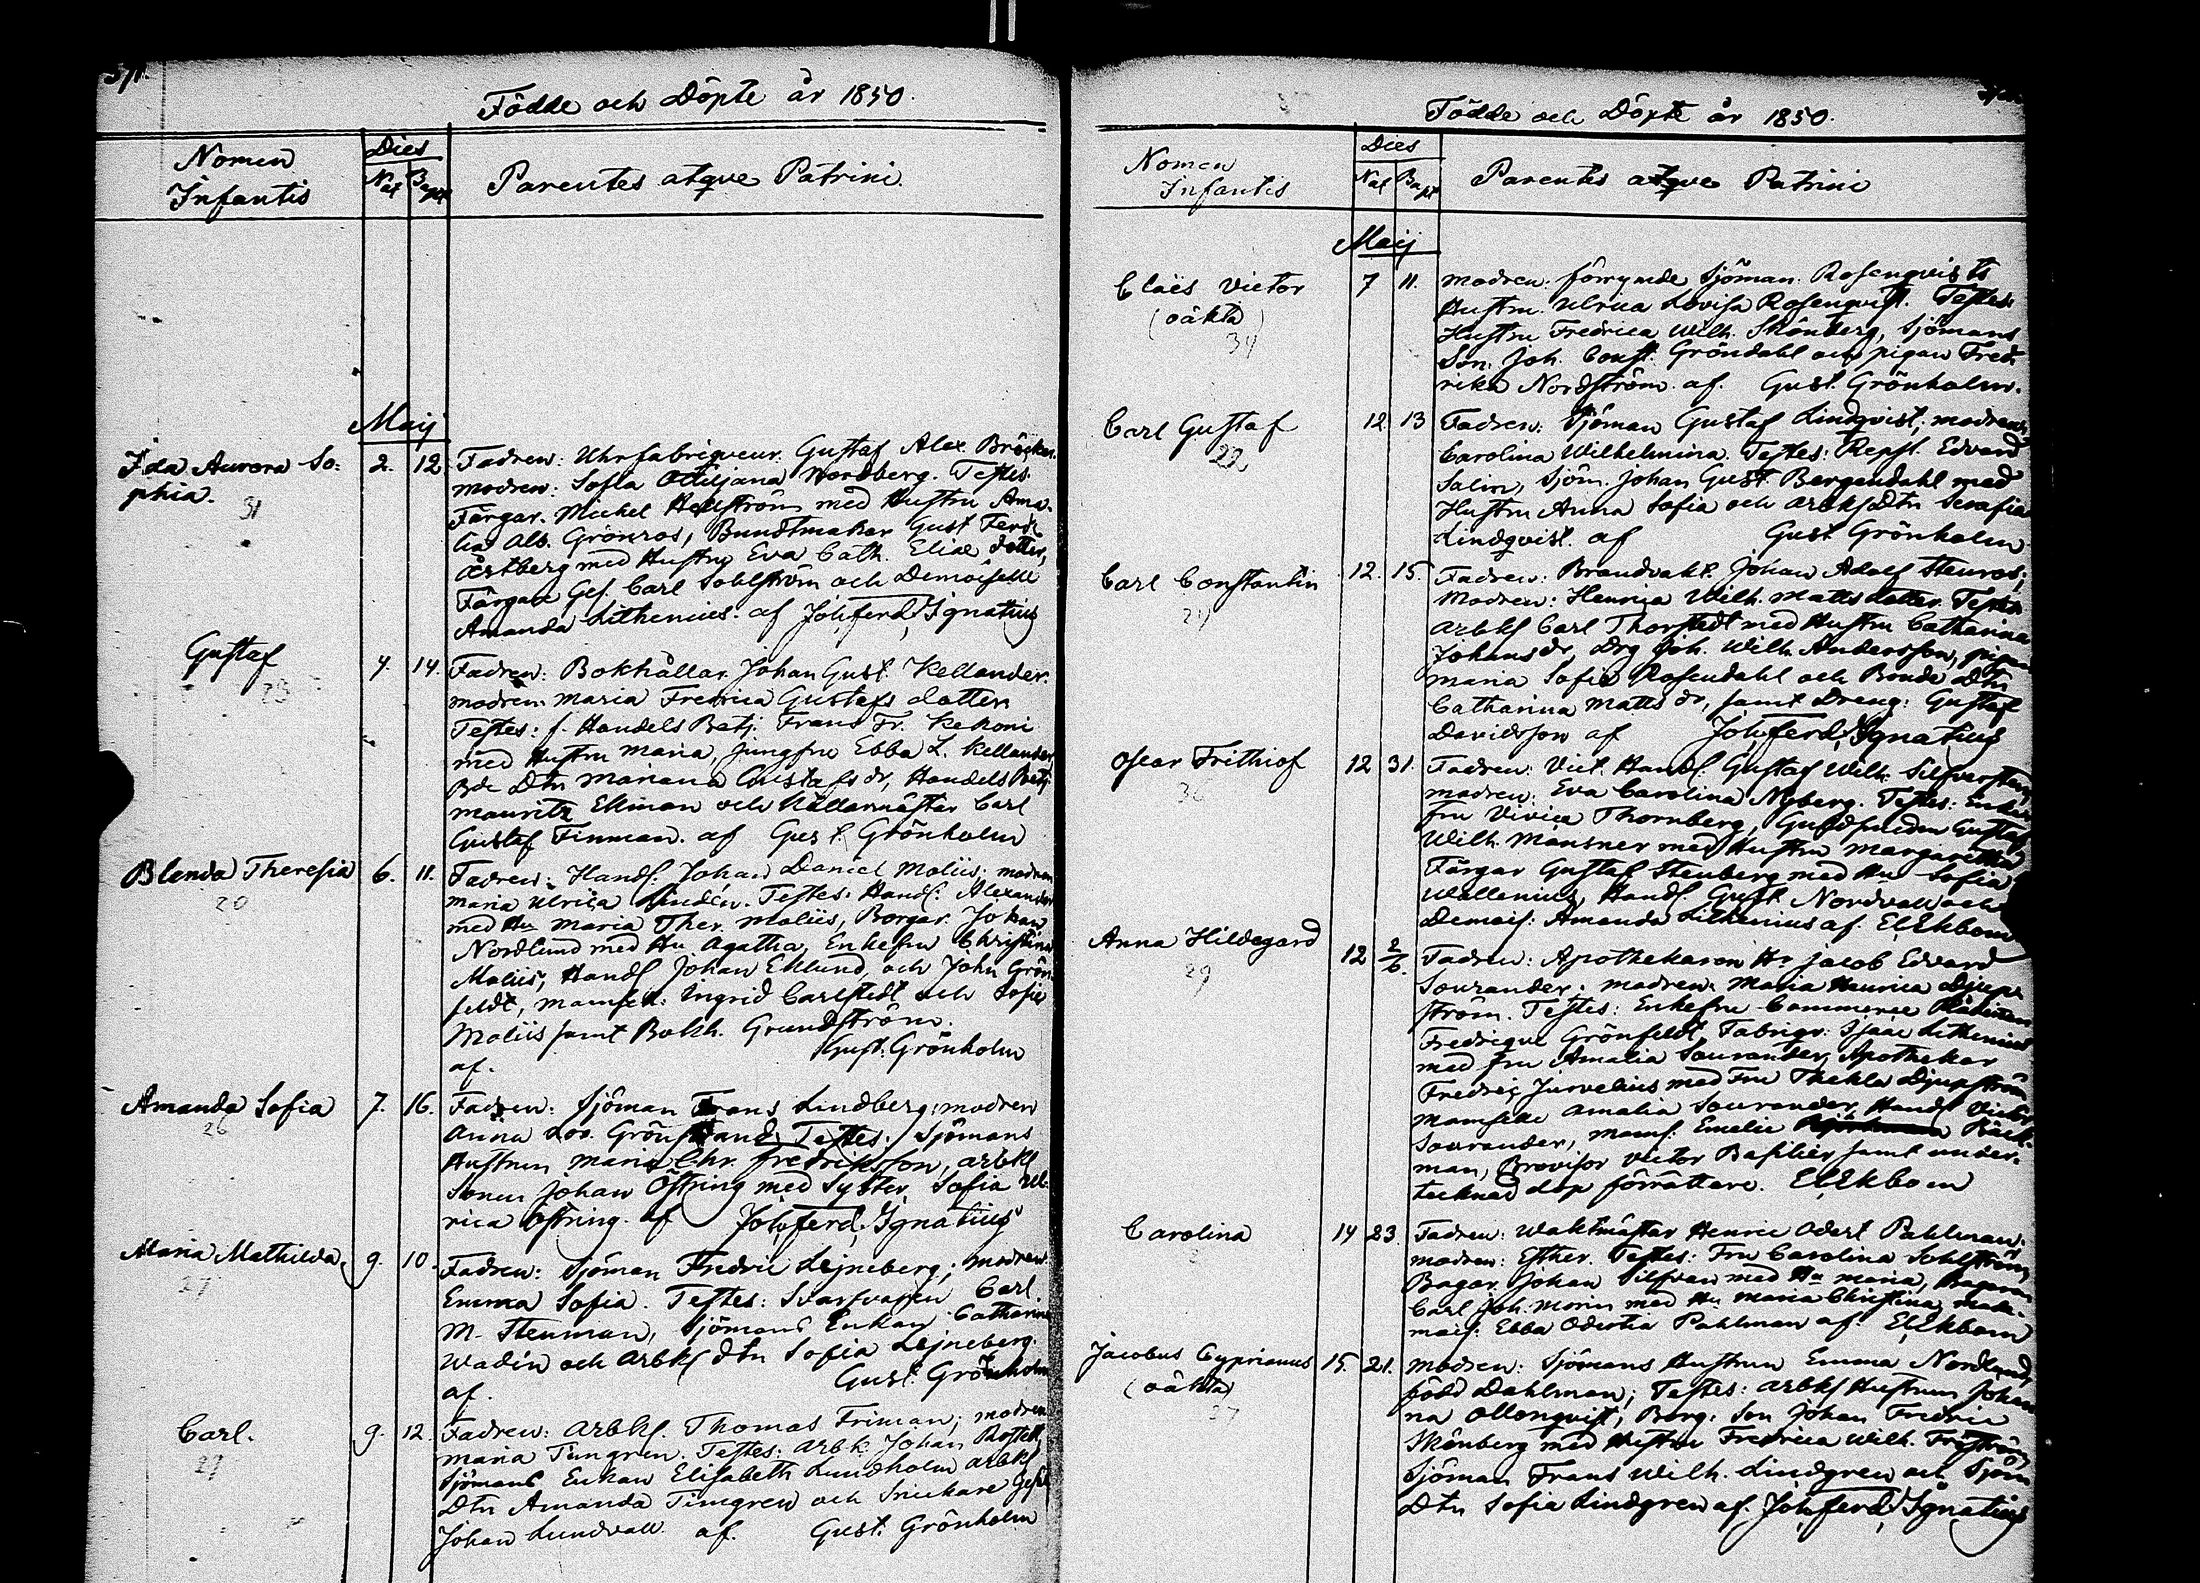 Födde och Döpte år 1850.
Nomen
Infantis
Dies
Nat
Bapt
Parentes atqve Patrini.
Maij
Ida Aurora So-
phia.
31
2. 12.
Fadren: Uhrfabriqueur. Gustaf Alex.
modren: Sofia Ottiljana Nordberg. Testes.
Färgar. Mickel Hellström med Hustru Ama-
lia Alb. Grönros, Bundtmakar Gust. Ferd.
Östberg med Hustru Eva Cath. Eliæ dotter,
Färgare Ges. Carl Sohlström och Demoiselle
Amanda Lithenius. af Joh. Ferd. Ignatius
Gustaf
23
4. 14.
Fadren: Bokhållar. Johan Gust. Kellander.
modren Maria Fredrica Gustafs dotter
Testes: f. Handels Betj. Frans Fr. Kekoni
med Hustru Maria, Jungfru Ebba L. Kellander,
Bde Dtn Mariana Gustafs dr, Handels Betj
Mauritz Ekman och Källarmästar Carl
Gustaf Finman. af Gust. Grönholm
Blenda Theresia
20
6. 11.
Fadren: Handl. Johan Daniel Moliis. modren
Maria Ulrica Lindén. Testes: Handl. Alexander
med Hu Maria Ther. Moliis, Borgar. Johan
Nordlund med Hu Agatha, Enkefru Christina
Moliis, Handl Johan Eklund, och John Grön-
feldt, Mamsell: Ingrid Carlstedt och Sofie
Moliis samt Bokh. Grundström.
af. Gust. Grönholm
Amanda Sofia
26
7. 16.
Fadren: Sjöman Frans Lindberg; modren
Anna Lov. Grönstrand. Testes: Sjömans
Hustrun Maria Chr. Fredriksson, arbkl
Sonen Johan Östring med Syster Sofia Ul-
rica Östring. af Joh. Ferd. Ignatius
Maria Mathilda
27
9. 10.
Fadren: Sjöman Fredric Lejneberg; modren
Emma Sofia. Testes: Svarfvaren Carl
M. Stenman, Sjömans Enkan Catharina
Wadén och Arbkl dtn Sofia Lejneberg.
af. Gust. Grönholm
Carl.
27
9. 12.
Fadren: Arbkl. Thomas Friman; modren
Maria Timgren. Testes: Arbk. Johan
Sjömans Enkan Elisabeth Lundholm arbkl
Dtn Amanda Timgren och Snickare Gesell
Johan Lundvall af. Gust. Grönholm
Födde och Döpte år 1850.
Nomen
Infantis
Dies
Nat
Bapt
Parentes atqve Patrini
Maij
Claës Victor
(oäkta)
34
7 11.
modren: förrymde Sjöman. Rosenqvists
Hustru Ulrica Lovisa Rosenqvist. Testes:
Hustru Fredrica Wilh. Skönberg, Sjömans
Son Joh. Const. Gröndahl och pigan Fred-
rika Nordström. af. Gust. Grönholm.
Carl Gustaf
22
12 13
Fadren: Sjöman Gustaf Lindqvist; modren
Carolina Wilhelmina. Testes: Repsl. Edvard
Salin, Sjöm. Johan Gust. Bergendahl med
Hustru Anna Sofia och arbks dtn Serafia
Lindqvist. af Gust Grönholm
Carl Constantin
24
12. 15.
Fadren: Brandvakt. Johan Adolf Stenros;
Modren: Henrica Wilh. Matts dotter. Testes
Arbkl Carl Thorstedt med Hustru Catharina
Johans dr, Drg Joh. Wilh. Andersson, pigan
Maria Sofia Rosendahl och Bonde Dtn
Catharina Matts dr, samt Dreng: Gustaf
Davidsson af Joh. Ferd. Ignatius
Oscar Frithiof
36
12 31.
Fadren: Vict. Handl. Gustaf Wilh.
modren: Eva Carolina Nyberg. Testes: Enke
fru Vivica Thornberg, Guldsmeden Gustaf
Wilh. Mansner med Hustru Margaretha
Färgar Gustaf Stenberg med Hu Sofia
Wallenius, Handl. Gust. Nordvall och
Demois: Amanda Lithenius af. E. Ekbom
Anna Hildegard
29
12 2/6.
Fadren: Apothekaren Hr Jacob Edvard
Sourander. modren: Maria Henrica Djup-
ström. Testes: Enkefru Commerce Rådinnan
Fredrique Grönfeldt, Fabriqr: Isaac Lithenius
med fru Amalia Sourander, Apothekar
Fredric Jurvelius med Fru Thekla Djupström
Mamselle Amalia Sourander, Handl Victor
Sourander, mams: Emelie Käck-
man, Provisor Victor Basilier samt under-
tecknad dop förrättare. E. Ekbom
Carolina
14 23.
Fadren: Waktmästar Henric Odert Pahlman.
modren: Esther. Testes: Fru Carolina Sohlström
Bagar. Johan Silfvan med Hu Maria, Bagaren
Carl Joh. Morin med Hu Maria Christina, made-
mois: Ebba Odertia Pahlman af. E. Ekbom
Jacobus Cyprianus
(oäkta)
27
15. 21.
modren: Sjömans Hustrun Emma Nordlund,
född Dahlman; Testes: arbkl Hustrun Johan
na Ollonqvist, Borg: Son Johan Fredric
Skönberg med Hustru Fredrica Wilh. Friström,
Sjöman Frans Wilh. Lindgren och Sjöm
Dtn Sofia Lindgren af. Joh. Ferd. Ignatius